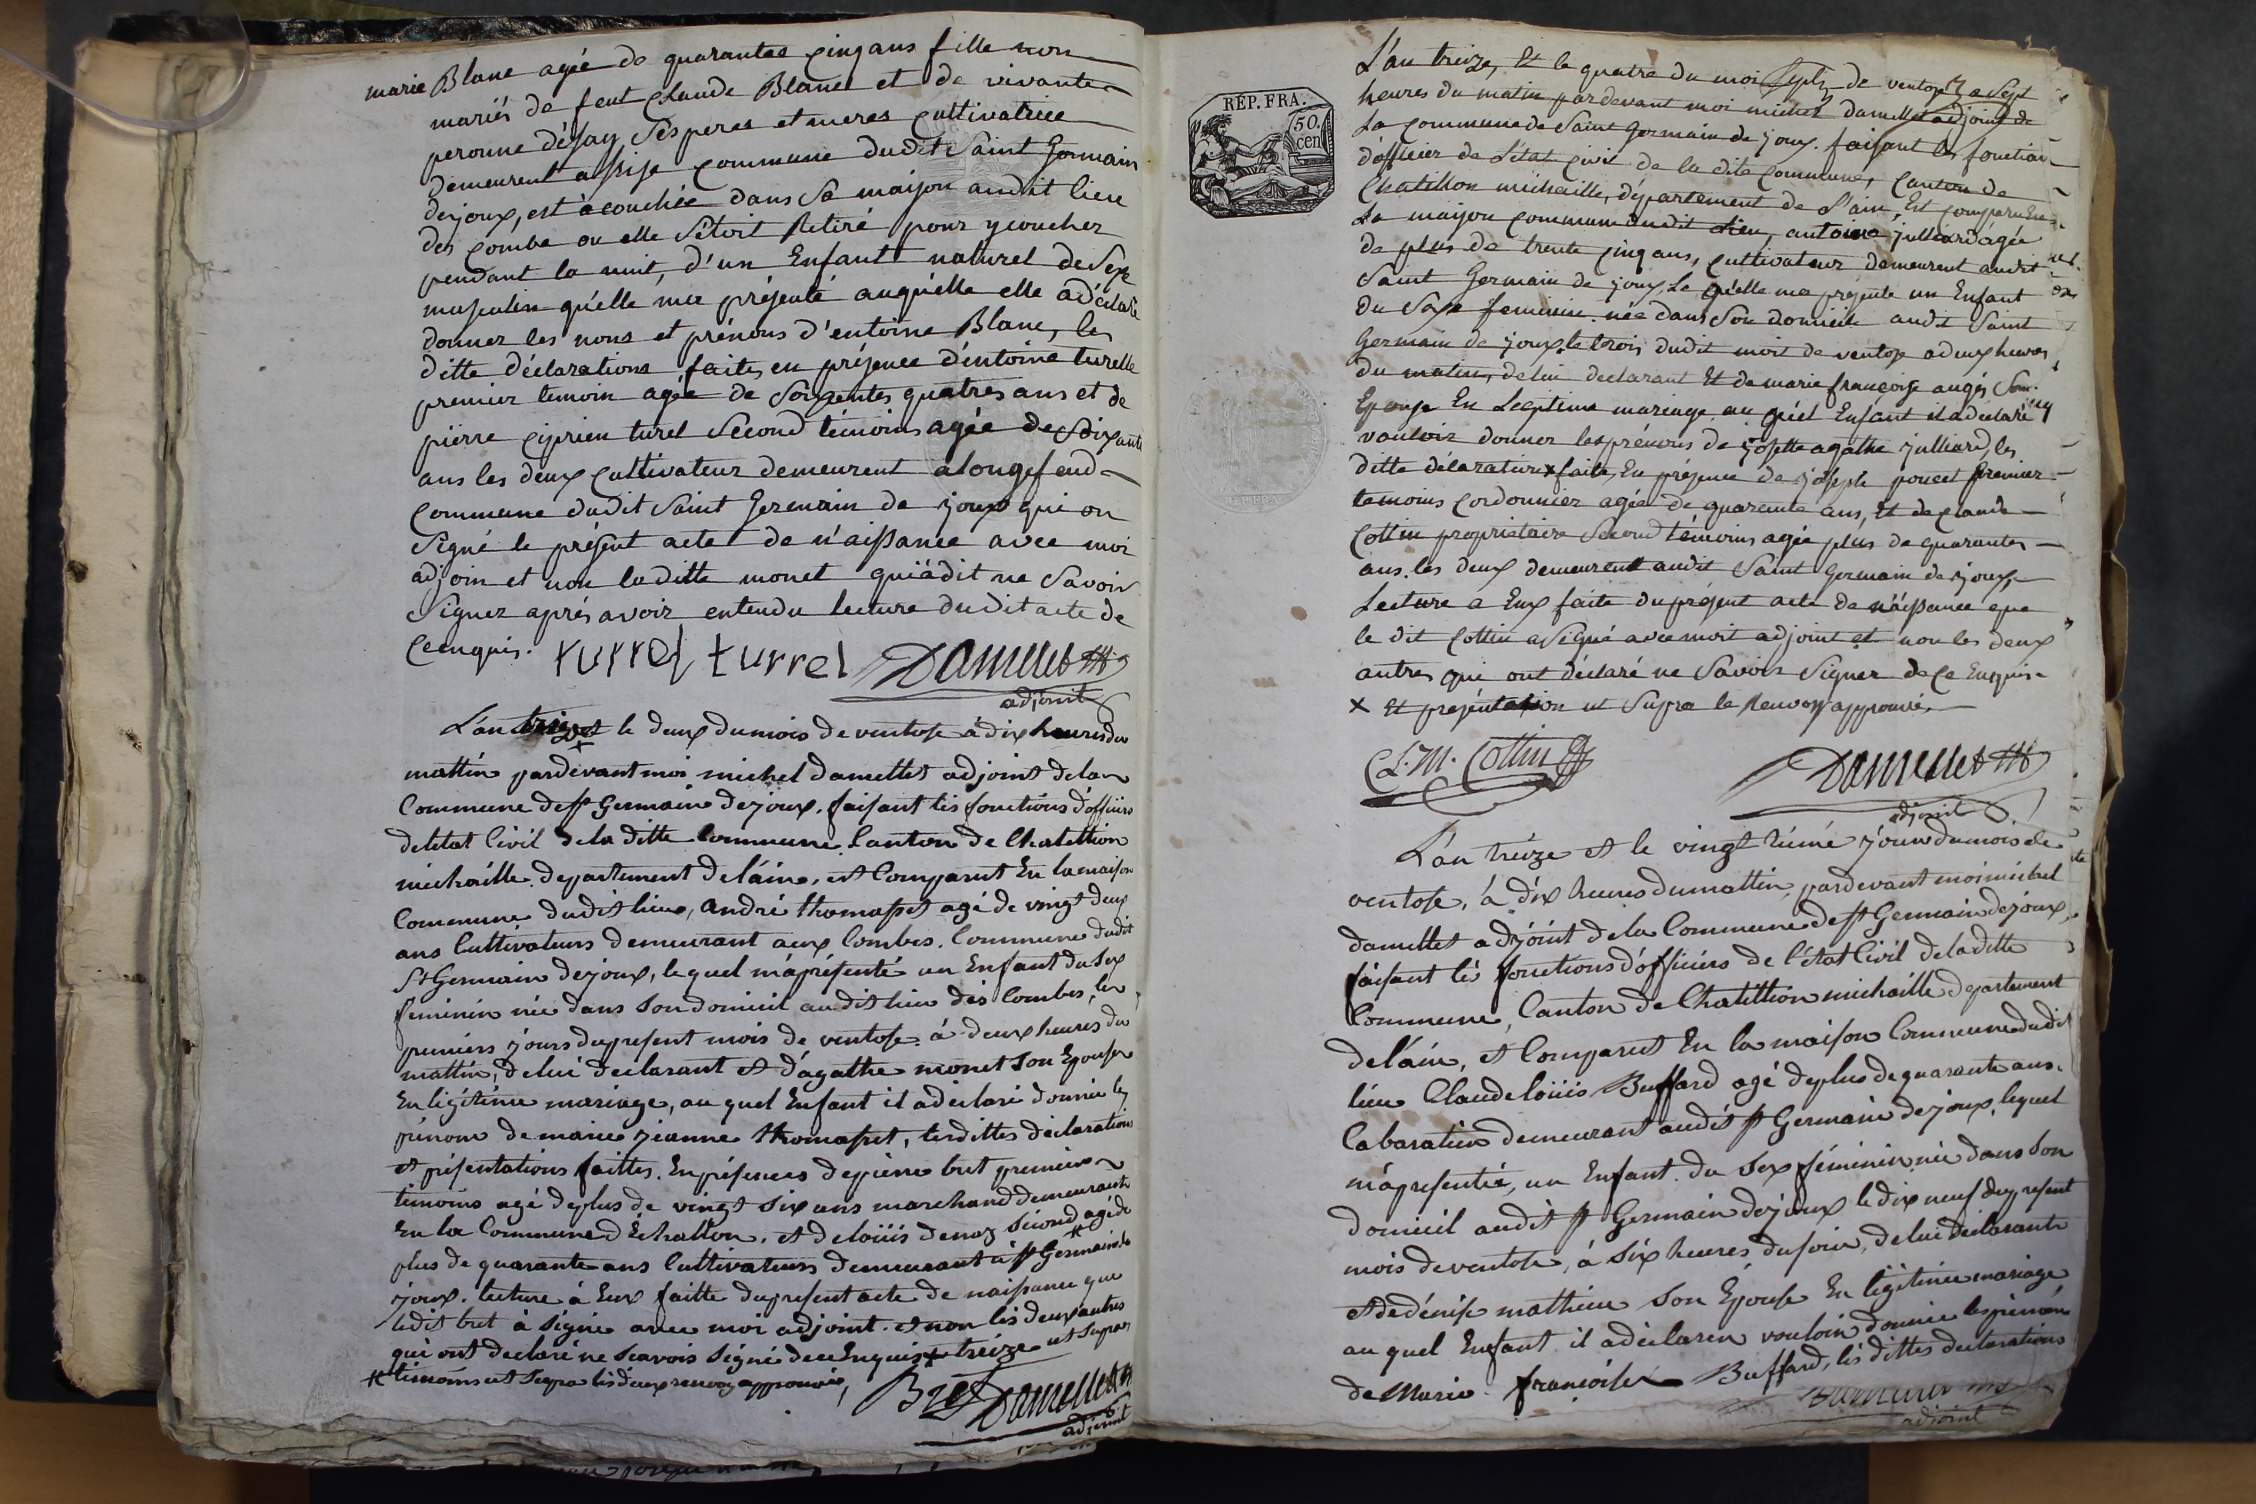 marie Blanc agée de quarantee cinq ans fille non
mariés de feut Claude Blanc et de vivante
peronne désay Ses peres et meres cultivatrice
demeurent a frise commune dudit Saint Germain
dejoux, est àcouchée dans Sa maison audit lieu
des combe ou elle S'étoit Retiré pour y coucher
pendant la nuit, d'un Enfant naturel de Sex
masculin qu'elle ma présenté auqu'elle elle a déclaré
donner les nons et prénons d'entoine Blanc, les
ditte déclarations faites en présence d'entoine turelle
premier temoin agée de Soixentes quatres ans et de
pierre ciprien turel Second témoins agée de Soixante
ans les deux cultivateur demeurent a longefend
Commune dudit Saint Germain de joux qui on
Signé le présent acte de n'aissance avec moi
adjoin et non laditte monet qui a dit ne Savoir
Signer aprés avoir entendu lecture dudit acte de
Ce enquis. turrel turrel Damellet
adjoint
L'an treize et le deux du mois de ventose à dix heures du
mattin pardevant moi michel damellet adjoint de la
Commune de St Germain dejoux, faisant les fonctions d'officiers
de létat Civil de la ditte Commune, Canton de Chatillion
michaille, departement de láin, est Comparut En la maison
Commune dudit lieu, andré thomasset agé de vingt deux
ans Cultivateurs demeurant aux Combes. Commune dudit
St Germain dejoux, lequel m'a présenté un Enfant du Sex
feminin née dans Son domicil audit lieu des Combes, le
premiers jours du present mois de ventose à deux heures du
mattin, de lui declarant et d'agathe monet Son Epouse
En ligitime mariage, au quel Enfant il a déclaré donner les
prénom de marie jeanne thomasset, lesdittes déclarations
et présentations faittes. En présences de pierre bret premier
temoins agé de plus de vingt Six ans marchand demeurant
En la Commune d'Echallon, et de loüis denoz Sécond agé de
plus de quarante ans Cultivateurs demeurant à St Germain de
joux. lecture à Eux faitte du present acte de naissance que
ledit bret à Signé avec moi adjoint. et non les deux autres
qui ont declaré ne Scavois Signé de ce Enquis + treize ut Supra
temoins ut Supra les deux renvoy approuvée,
Bret Damellet
adjoint
RÉP. FRA.
50.
cen
L'an treize, Et le quatre du moi de ventose a Sept
heures du matin pardevant moi michel Damellet adjoint de
La commune de Saint Germain de joux. faisant les fonction
d'officier de l'état civil de la dite commune, canton de
Chatillon michaille, département de l'ain, Est comparu En
La maison commune dudit Lieu, antoine julliard agée
de plus de trente cinq ans, cultivateur demeurent audit
Saint Germain de joux, Le qu'elle ma présente un Enfant
du Sexe feminin née dans Son domicile audit Saint
Germain de joux, le trois dudit mois de ventose a deux heures
du matin, de lui declarant Et de marie françoise augés Son
Epouse En Legitime mariage au quel Enfant il a declaré
vouloir donner les prénoms de josette agathe julliard, les
ditte déclaration x faite, En présence de joseph poncet Premier
temoins cordonnier agée de quarente ans, Et de claude
Cottin proprietaire Second témoins agée plus de quarantes
ans. les deux demeurent audit Saint Germain de joux,
Lecture a Eux faite du présent acte de n'aissance que
le dit Cottin a Signé avec moit adjoint et non les deux
autres qui ont déclaré ne Savoir Signer de Ce Enquis
x Et présentation ut Supra le Renvoy approuvé,
C.L.M. Cottin Damellet
adjoint
L'an treize et le vingt jours du mois de
ventose, à dix heures du mattin, pardevant moi michel
damellet adjoint de la Commune de St Germain dejoux,
faisant les fonctions d'officiers de l'état Civil de la ditte
Commune, Canton de Chatillion michaille departement
de l'áin, et Comparut En la maison Commune dudit
lieu Claude loüis Buffard agé de plus de quarante ans.
Cabaratier demeurant audit St Germain dejoux, lequel
m'a presentée, un Enfant du Sex féminin née dans Son
domicil audit St Germain dejoux le dix neuf du present
mois de ventose, à Six heures du soir, de lui declarante
et de dénise mathieu Son Epouse En ligitime mariage
au quel Enfant il a declarer vouloir donner les prénom
de Marie françoise Buffard, les dittes declarations
Damellet
adjoint